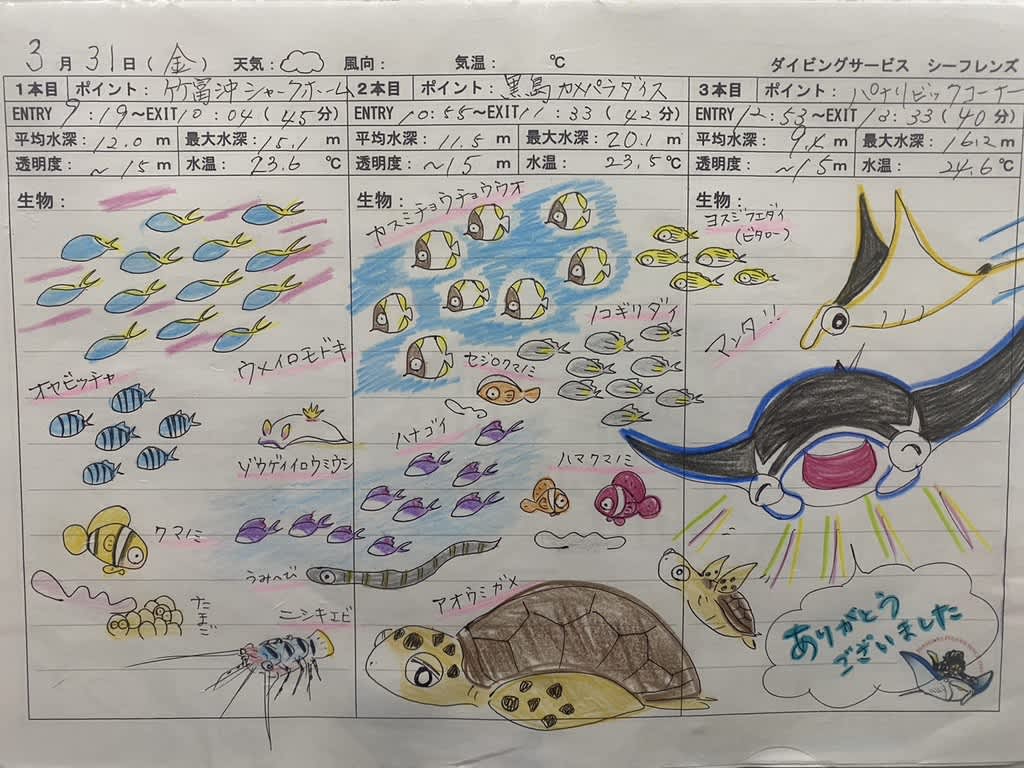 3月31日(金) 天気: 風向: 気温: ℃ ダイビングサービス シーフレンズ
1本目 ポイント: 竹富沖シャークホーム 2本目 ポイント: 黒島カメパラダイス 3本目 ポイント: パナリビッグコーナー
ENTRY 9:19〜EXIT 10:04(45分) ENTRY 10:55〜EXIT 11:33(42分) ENTRY 12:53〜EXIT 13:33(40分)
平均水深: 12.0 m 最大水深: 15.1 m 平均水深: 11.5 m 最大水深: 20.1 m 平均水深: m 最大水深: 16.2 m
透明度: 〜15 m 水温: 23.6 ℃ 透明度: 〜15 m 水温: 23.5 ℃ 透明度: 〜15 m 水温: 24.6 ℃
生物: 生物: 生物:
ウメイロモドキ
オヤビッチャ
ゾウゲイロウミウシ
クマノミ
たまご
うみへび
ニシキエビ
カスミチョウチョウウオ
ノコギリダイ
セジロクマノミ
ハナゴイ
ハマクマノミ
アオウミガメ
ヨスジフエダイ
(ビタロー)
マンタ!!
ありがとう
ございました